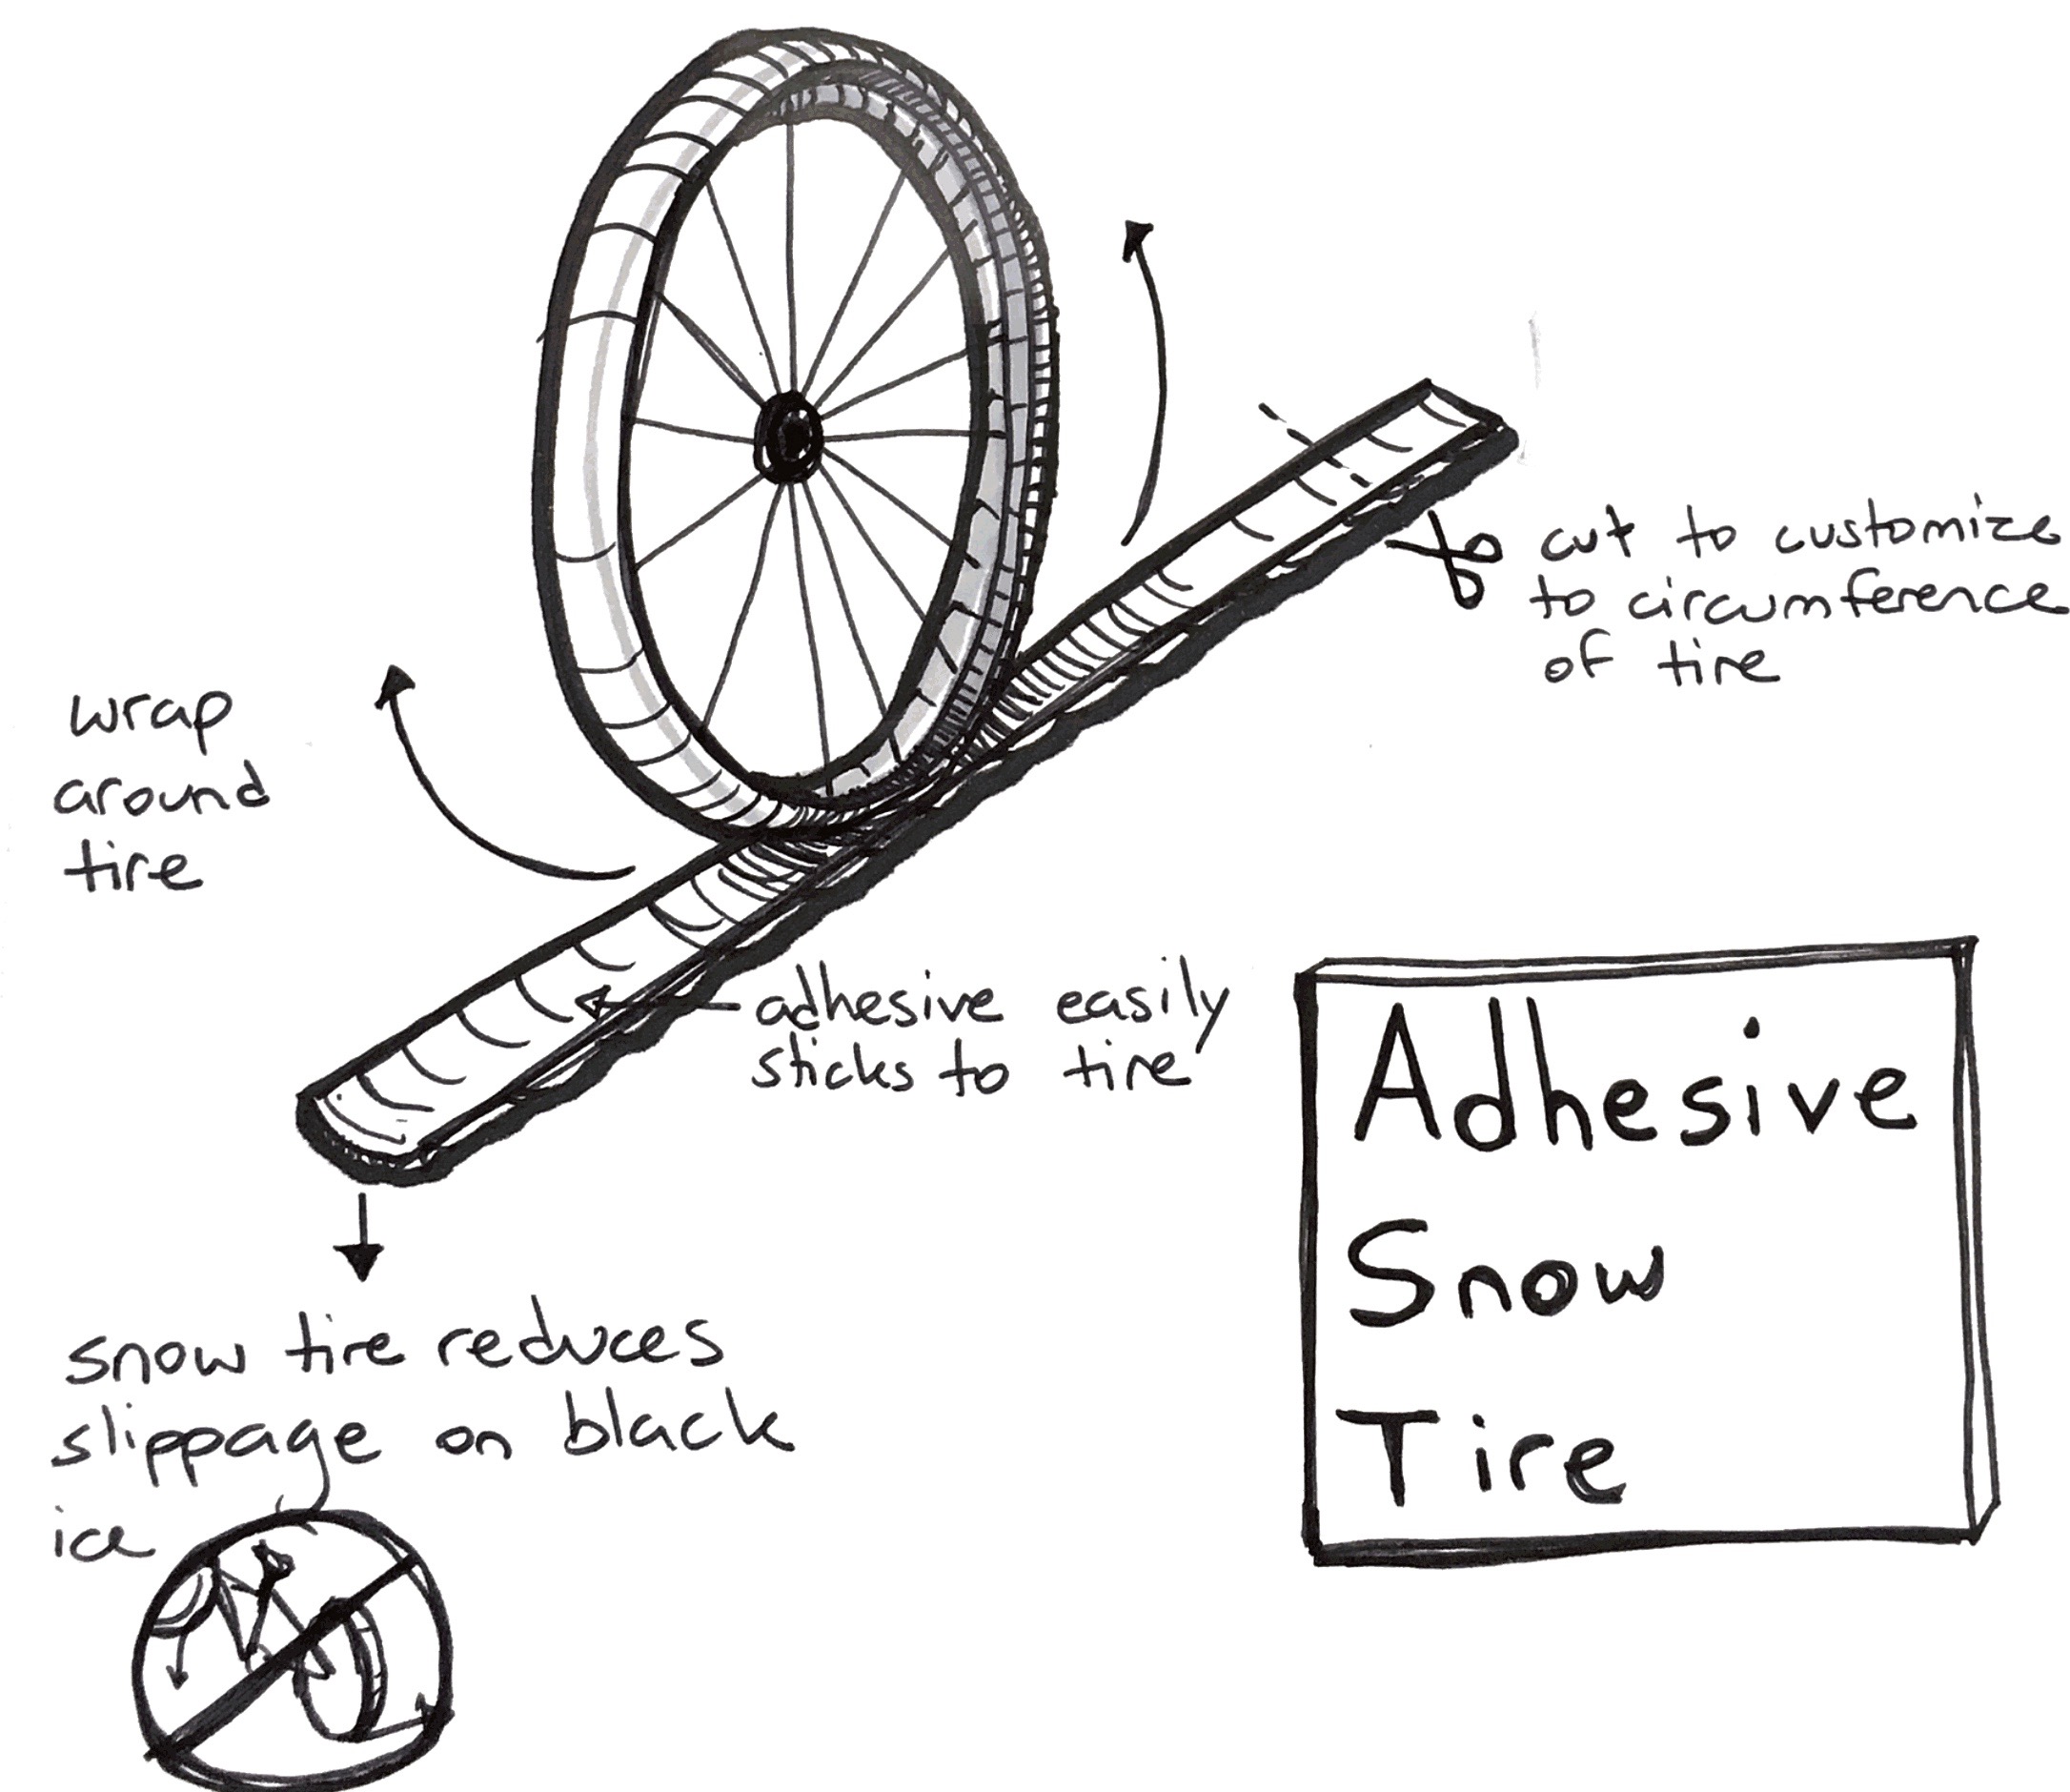 cut to customize
to circumference
of tire
wrap
around
tire
adhesive easily
sticks to tire
Adhesive
Snow
Tire
snow tire reduces
slippage on black
ice